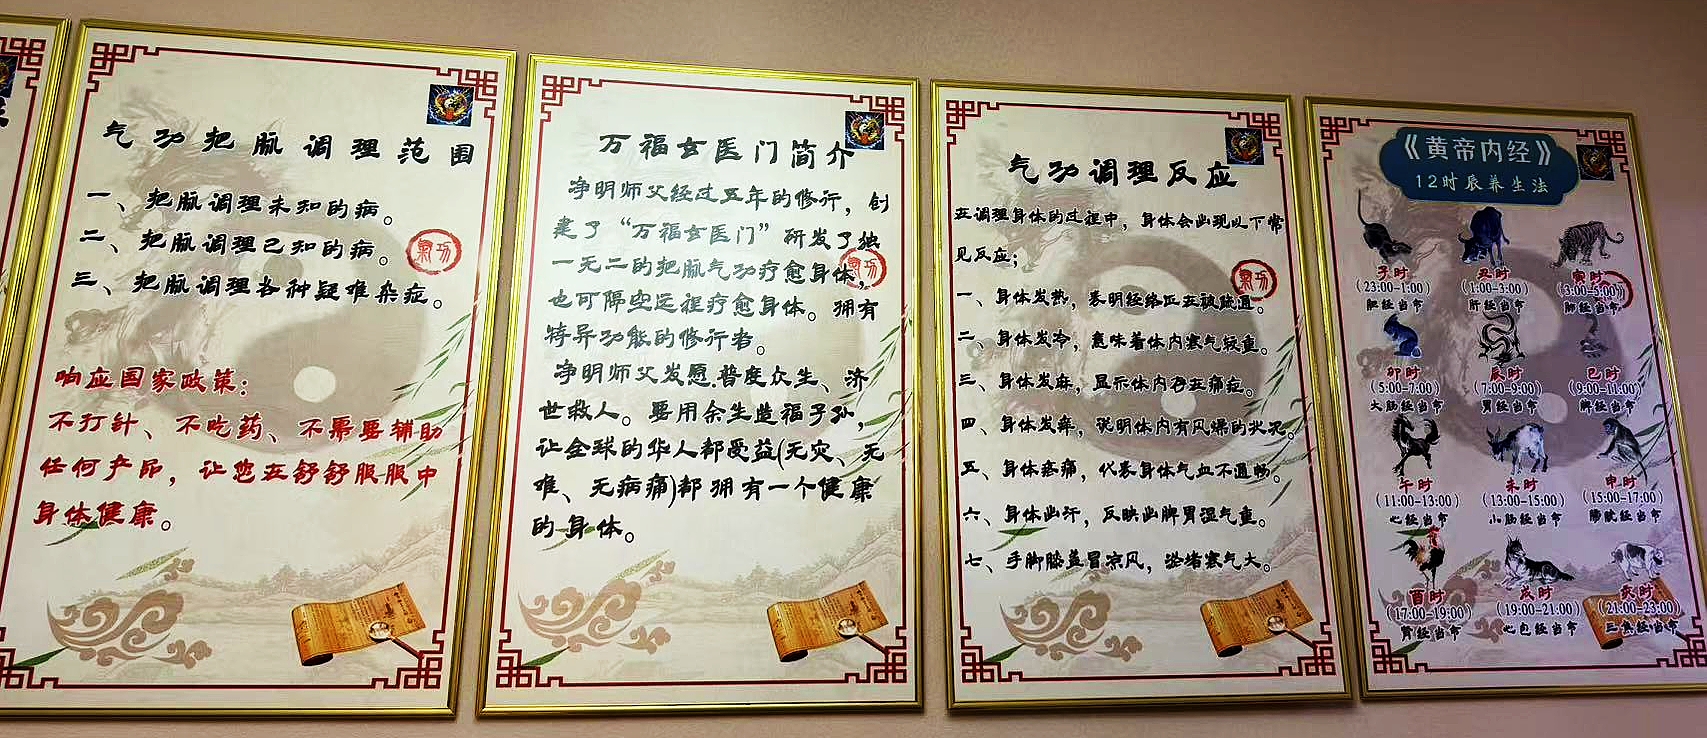 气功把脈调理范围
一、把脈调理未知的病。
二、把脈调理已知的病。
三、把脈调理各种疑难杂症。
氣功
响应国家政策：
不打针、不吃药、不需要辅助
任何产品，让您在舒舒服服中
身体健康。
万福玄医门简介
净明师父经过五年的修行，创
建了“万福玄医门”研发了独
一无二的把脈气功疗愈身体，
氣功
也可隔空远程疗愈身体。拥有
特异功能的修行者。
净明师父发愿普度众生、济
世救人。要用余生造福子孙，
让全球的华人都受益(无灾、无
难、无病痛)都拥有一个健康
的身体。
气功调理反应
在调理身体的过程中，身体会出现以下常
见反应；
氣功
一、身体发热，表明经络正在被疏通。
二、身体发冷，意味着体内寒气较重。
三、身体发麻，显示体内存在痛症。
四、身体发痒，说明体内有风燥的状况。
五、身体疼痛，代表身体气血不通畅。
六、身体出汗，反映出脾胃湿气重。
七、手脚膝盖冒凉风，淤堵寒气大。
《黄帝内经》
12时辰养生法
子时 丑时 寅时
(23:00-1:00) (1:00-3:00) (3:00-5:00)
胆经当令 肝经当令 肺经当令
卯时 辰时 巳时
(5:00-7:00) (7:00-9:00) (9:00-11:00)
大肠经当令 胃经当令 脾经当令
午时 未时 申时
(11:00-13:00) (13:00-15:00) (15:00-17:00)
心经当令 小肠经当令 膀胱经当令
酉时 戌时 亥时
(17:00-19:00) (19:00-21:00) (21:00-23:00)
肾经当令 心包经当令 三焦经当令